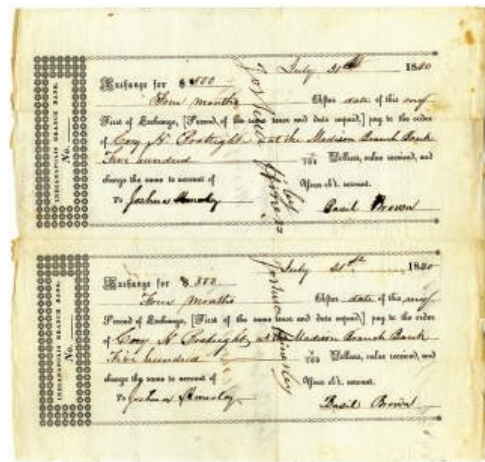 INDIANAPOLIS BRANCH BANK.
No.
July 21st 1840
Exchange for $500
Four months After date of this my
First of Exchange, [Second, of the same tenor and date unpaid,] pay to the order
of Cory H. Boatright at the Madison Branch Bank
Five hundred Dollars, value received, and
charge the same to account of Your ob't. servant.
To Joshua Basil Brown
Joshua
by
INDIANAPOLIS BRANCH BANK.
No.
July 21st 1840
Exchange for $500
Four months After date of this my
Second of Exchange, [First of the same tenor and date unpaid,] pay to the order
of Cory H. Boatright at the Madison Branch Bank
Five hundred Dollars, value received, and
charge the same to account of Your ob't. servant.
To Joshua Basil Brown
Joshua